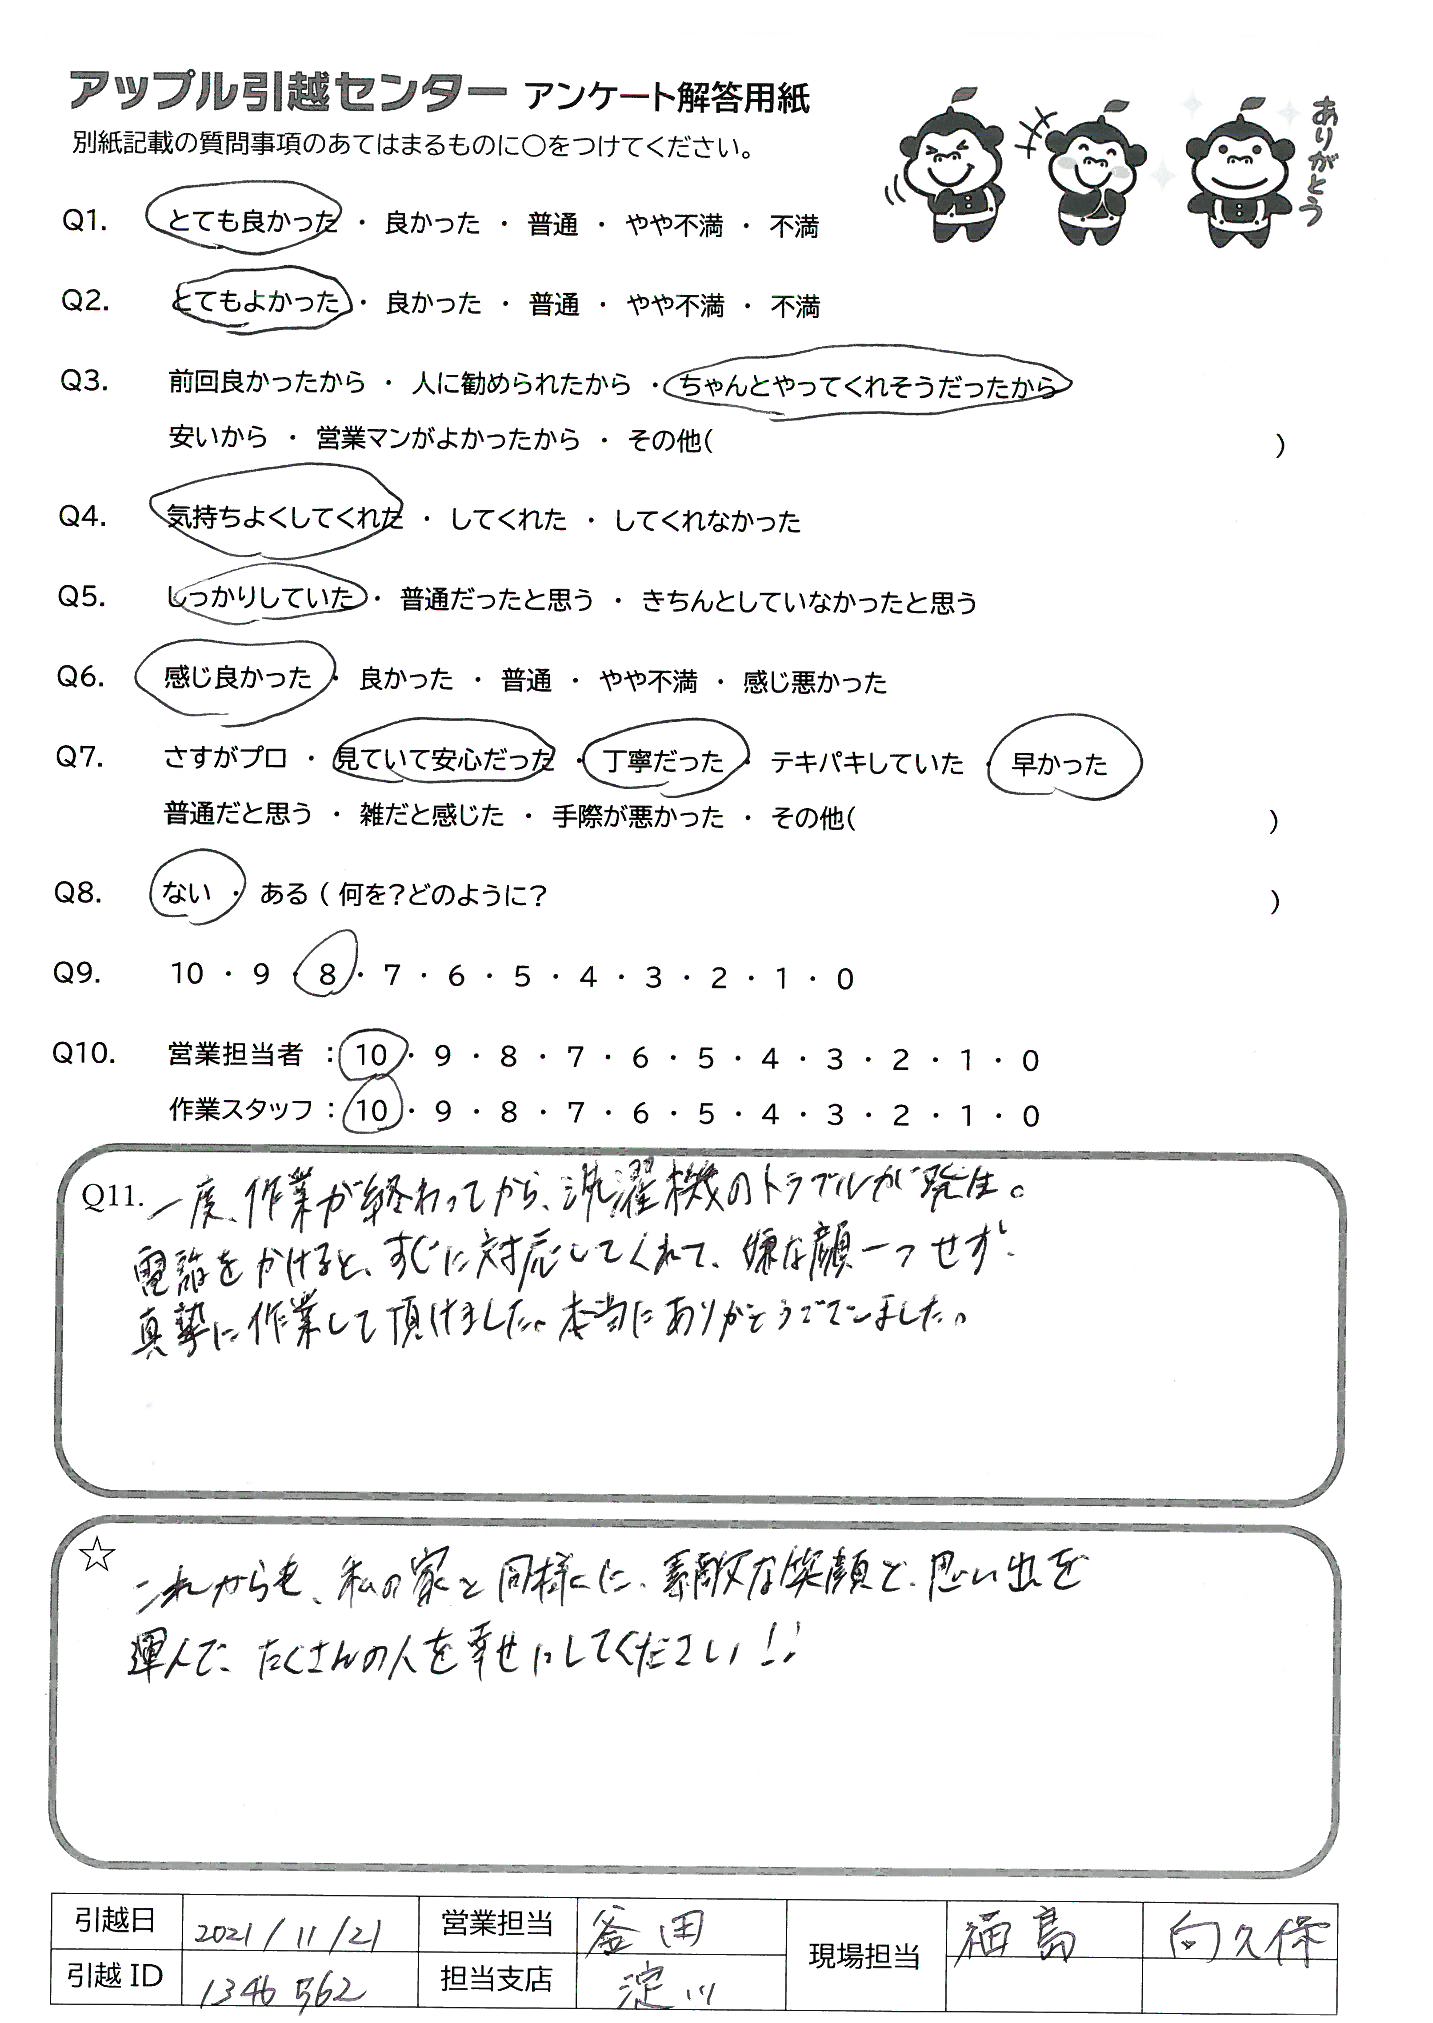 アップル引越センター アンケート解答用紙
別紙記載の質問事項のあてはまるものに○をつけてください。
ありがとう
Q1. とても良かった ・ 良かった ・ 普通 ・ やや不満 ・ 不満
Q2. とてもよかった ・ 良かった ・ 普通 ・ やや不満 ・ 不満
Q3. 前回良かったから ・ 人に勧められたから ・ ちゃんとやってくれそうだったから
安いから ・ 営業マンがよかったから ・ その他( )
Q4. 気持ちよくしてくれた ・ してくれた ・ してくれなかった
Q5. しっかりしていた ・ 普通だったと思う ・ きちんとしていなかったと思う
Q6. 感じ良かった ・ 良かった ・ 普通 ・ やや不満 ・ 感じ悪かった
Q7. さすがプロ ・ 見ていて安心だった ・ 丁寧だった ・ テキパキしていた ・ 早かった
普通だと思う ・ 雑だと感じた ・ 手際が悪かった ・ その他( )
Q8. ない ・ ある ( 何を?どのように? )
Q9. 10 ・ 9 ・ 8 ・ 7 ・ 6 ・ 5 ・ 4 ・ 3 ・ 2 ・ 1 ・ 0
Q10. 営業担当者 : 10 ・ 9 ・ 8 ・ 7 ・ 6 ・ 5 ・ 4 ・ 3 ・ 2 ・ 1 ・ 0
作業スタッフ : 10 ・ 9 ・ 8 ・ 7 ・ 6 ・ 5 ・ 4 ・ 3 ・ 2 ・ 1 ・ 0
Q11. 一度、作業が終わってから、洗濯機のトラブルが発生。
電話をかけると、すぐに対応してくれて、嫌な顔一つせず、
真摯に作業して頂けました。本当にありがとうございました。
☆ これからも、私の家と同様に、素敵な笑顔と、思い出を
運んで、たくさんの人を幸せにしてください!!
引越日 2021/11/21 営業担当 釜田 現場担当 福島 向久保
引越ID 1346562 担当支店 淀川